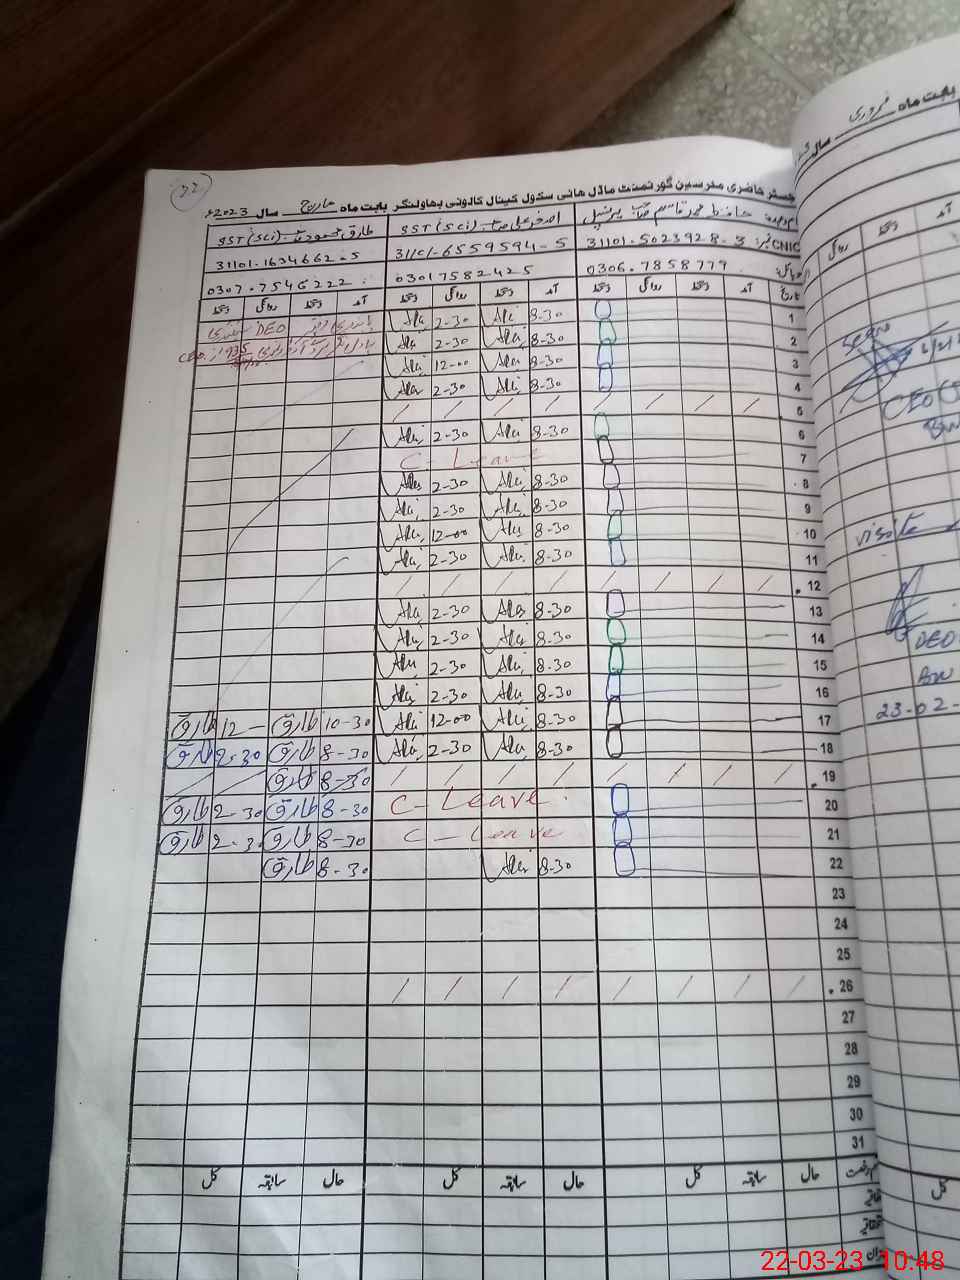 22
رجسٹر حاضری مدرسین گورنمنٹ ماڈل ہائی سکول کینال کالونی بہاولنگر بابت ماہ مارچ سال 2023ء
حافظ محمد قاسم صاحب پرنسپل
اصغر علی صاحب SST (Sci)
طارق محمود صاحب SST (Sci)
CNIC نمبر: 31101-5023928-3
31101-6559594-5
31101-1634662-5
0306-7858779
03017582425
0307-7546222
تاریخ آمد دستخط روانگی دستخط آمد دستخط روانگی دستخط آمد دستخط روانگی دستخط
1 8-30 Ali 2-30 Ali DEO
2 8-30 Ali 2-30 Ali
3 8-30 Ali 12-00 Ali
4 8-30 Ali 2-30 Ali
5 / / / / / / / /
6 8-30 Ali 2-30 Ali
7 C-Leave
8 8-30 Ali 2-30 Ali
9 8-30 Ali 2-30 Ali
10 8-30 Ali 12-00 Ali
11 8-30 Ali 2-30 Ali
12 / / / / / / / /
13 8-30 Ali 2-30 Ali
14 8-30 Ali 2-30 Ali
15 8-30 Ali 2-30 Ali
16 8-30 Ali 2-30 Ali
17 8-30 Ali 12-00 Ali 10-30 طارق 12 — طارق
18 8-30 Ali 2-30 Ali 8-30 طارق 2-30 طارق
19 / / / / / / / / 8-30 طارق / /
20 C-Leave 8-30 طارق 2-30 طارق
21 C-Leave 8-30 طارق 2-30 طارق
22 8-30 Ali 8-30 طارق
23
24
25
26 / / / / / / / /
27
28
29
30
31
حال سابقہ کل حال سابقہ کل حال سابقہ کل
بابت ماہ فروری سال
آمد دستخط روانگی
CEO
visite
DEO
23-02-
کل
22-03-23 10:48